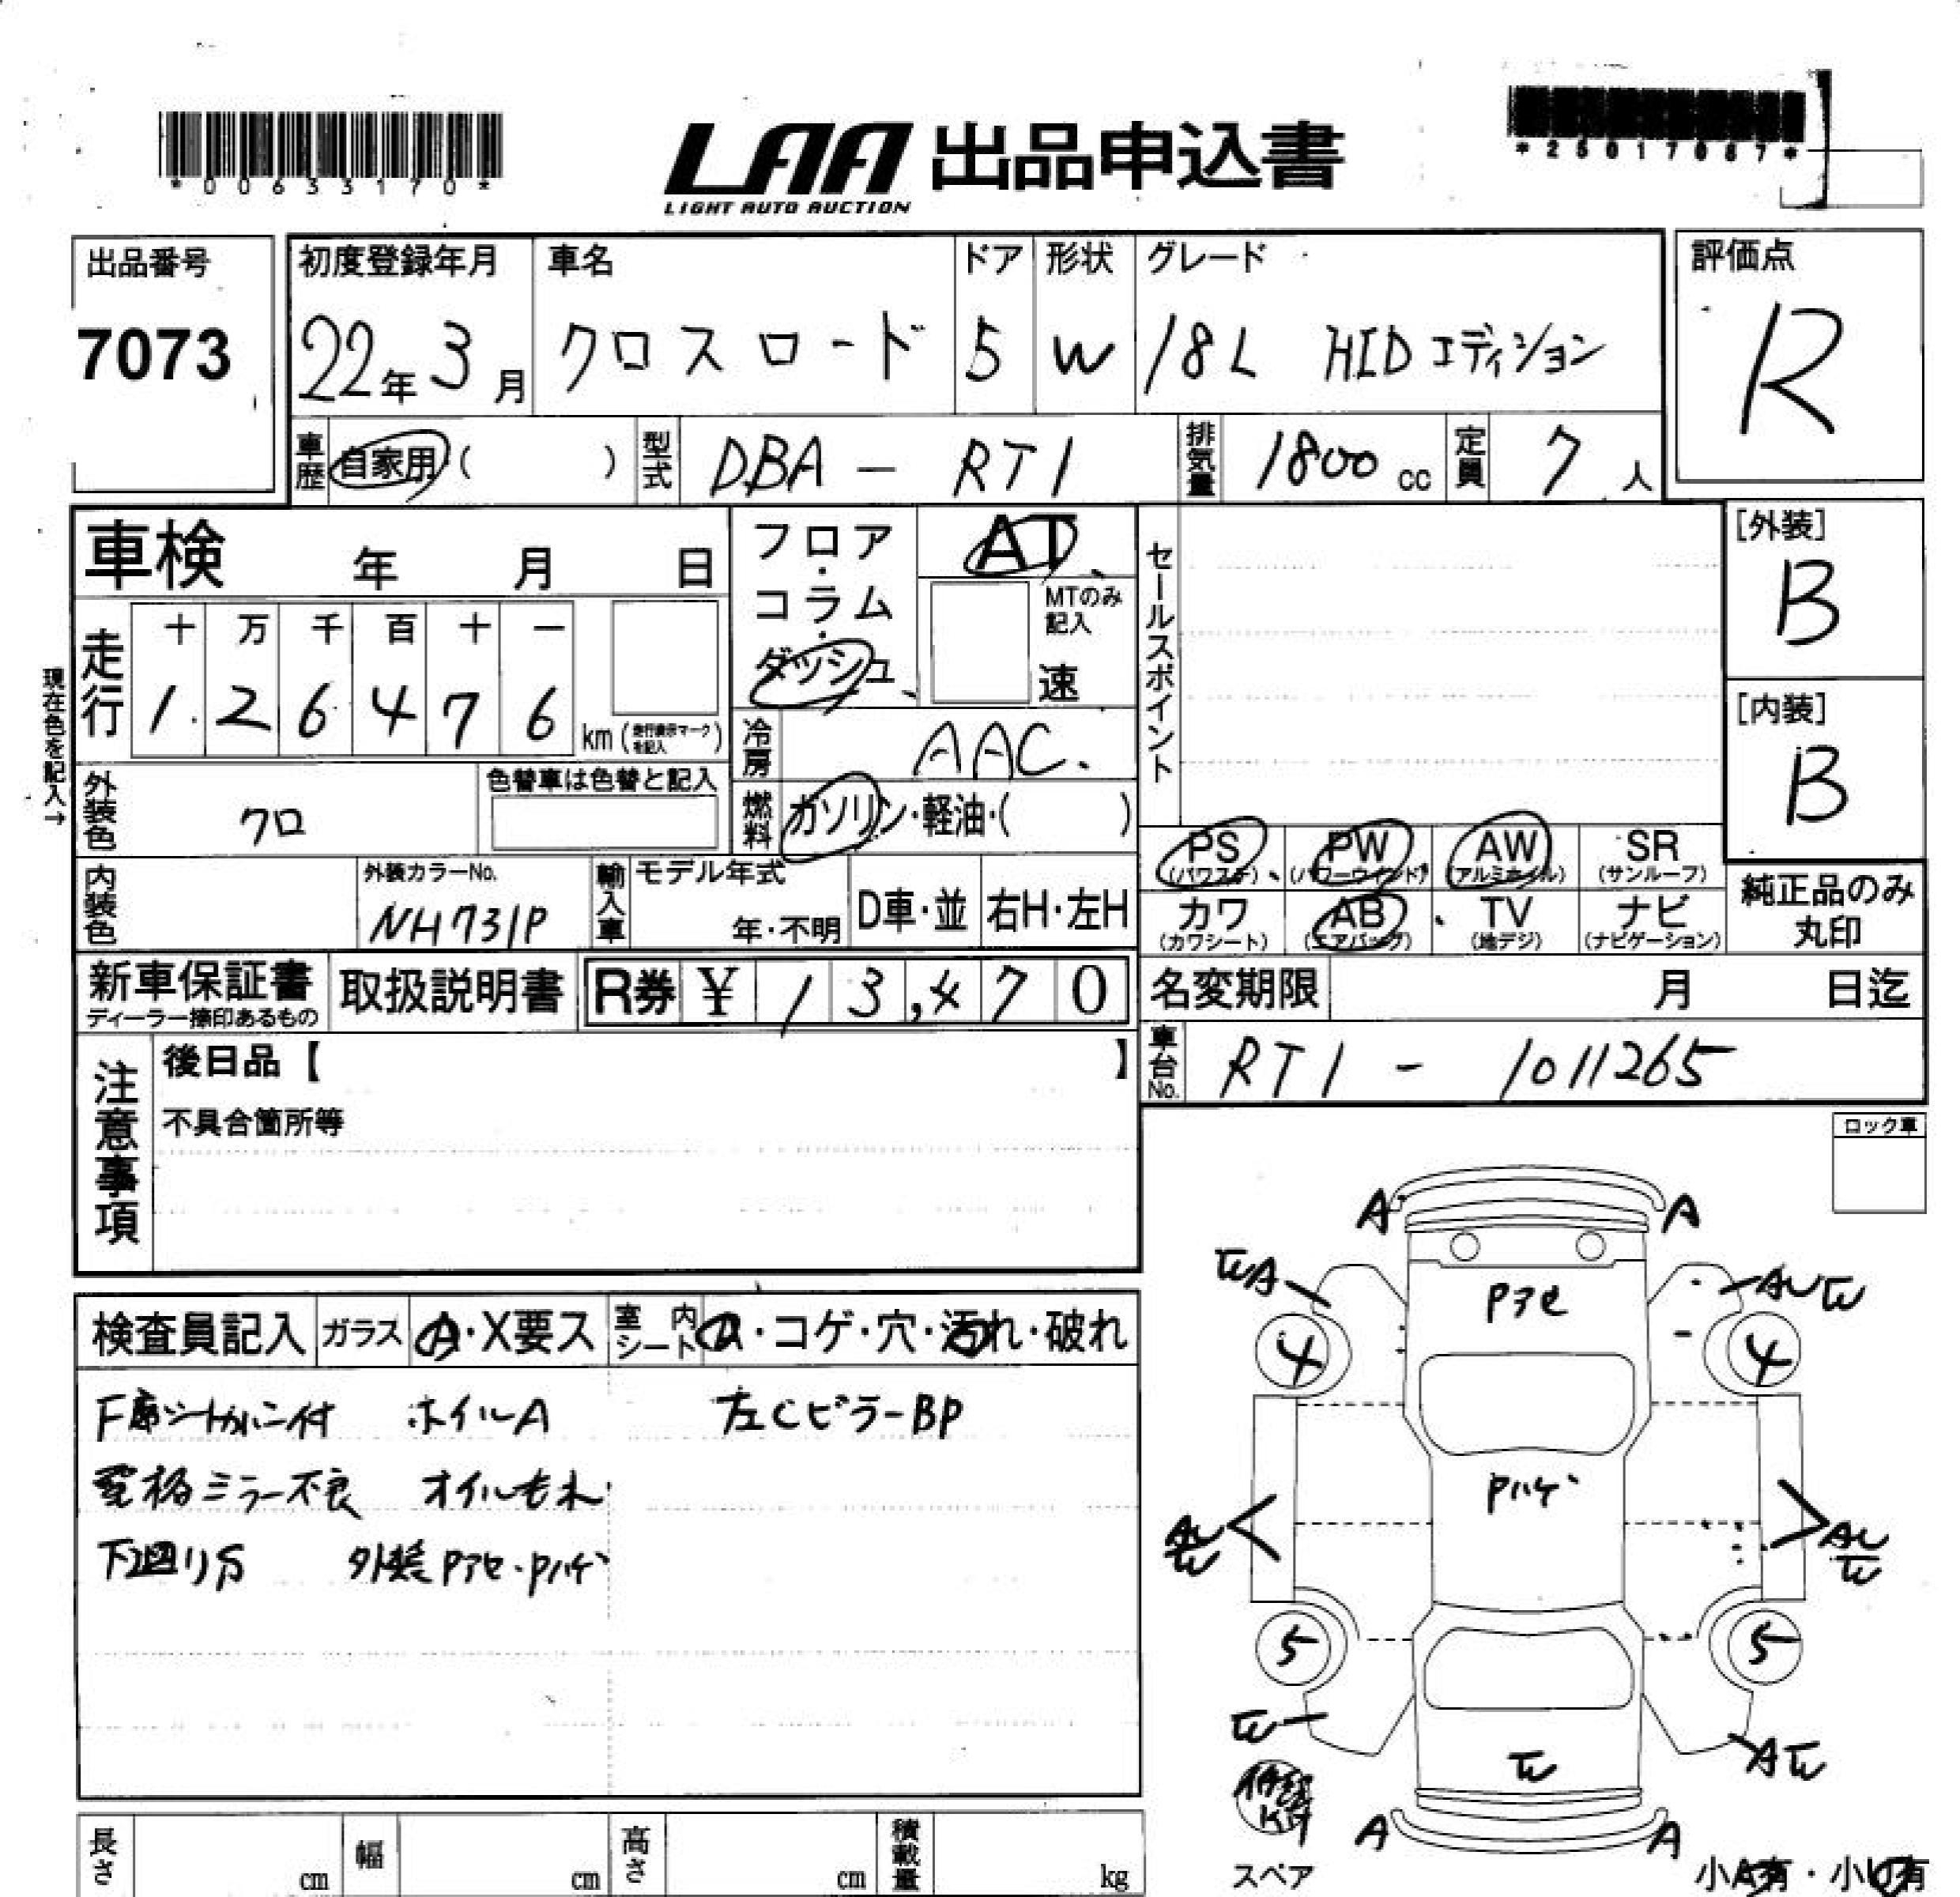 *00633170*
LAA 出品申込書
LIGHT AUTO AUCTION
*25017067*
出品番号
7073
初度登録年月
22年3月
車名
クロスロード
ドア
5
形状
W
グレード
18L HIDエディション
評価点
R
車歴
自家用( )
型式
DBA - RT1
排気量
1800 cc
定員
7 人
車検 年 月 日
フロア・コラム・ダッシュ
AT
MTのみ記入
速
セールスポイント
[外装]
B
[内装]
B
現在色を記入→
走行
十 万 千 百 十 一
1 2 6 4 7 6 km(走行表示マークを記入)
冷房
AAC
外装色
クロ
色替車は色替と記入
燃料
ガソリン・軽油・( )
PS
(パワステ)
PW
(パワーウインド)
AW
(アルミホイル)
SR
(サンルーフ)
内装色
外装カラーNo.
NH731P
輸入車
モデル年式
年・不明
D車・並
右H・左H
カワ
(カワシート)
AB
(エアバッグ)
TV
(地デジ)
ナビ
(ナビゲーション)
純正品のみ丸印
新車保証書
ディーラー捺印あるもの
取扱説明書
R券 ¥ 13,470
名変期限 月 日迄
車台No.
RT1 - 1011265
注意事項
後日品【 】
不具合箇所等
ロック車
検査員記入
ガラス
A・X要ス
室内シート
・コゲ・穴・汚れ・破れ
F席シートカバー付 ホイルA 左CピラーBP
電格ミラー不良 オイルもれ
下廻りS 外装Pアセ・Pハゲ
A A
WA
Pアセ
AUW
4 4
Pハゲ
AU
W
AU
W
5 5
W
W
AW
A A
スペア
小A有・小U有
長さ cm
幅 cm
高さ cm
積載量 kg